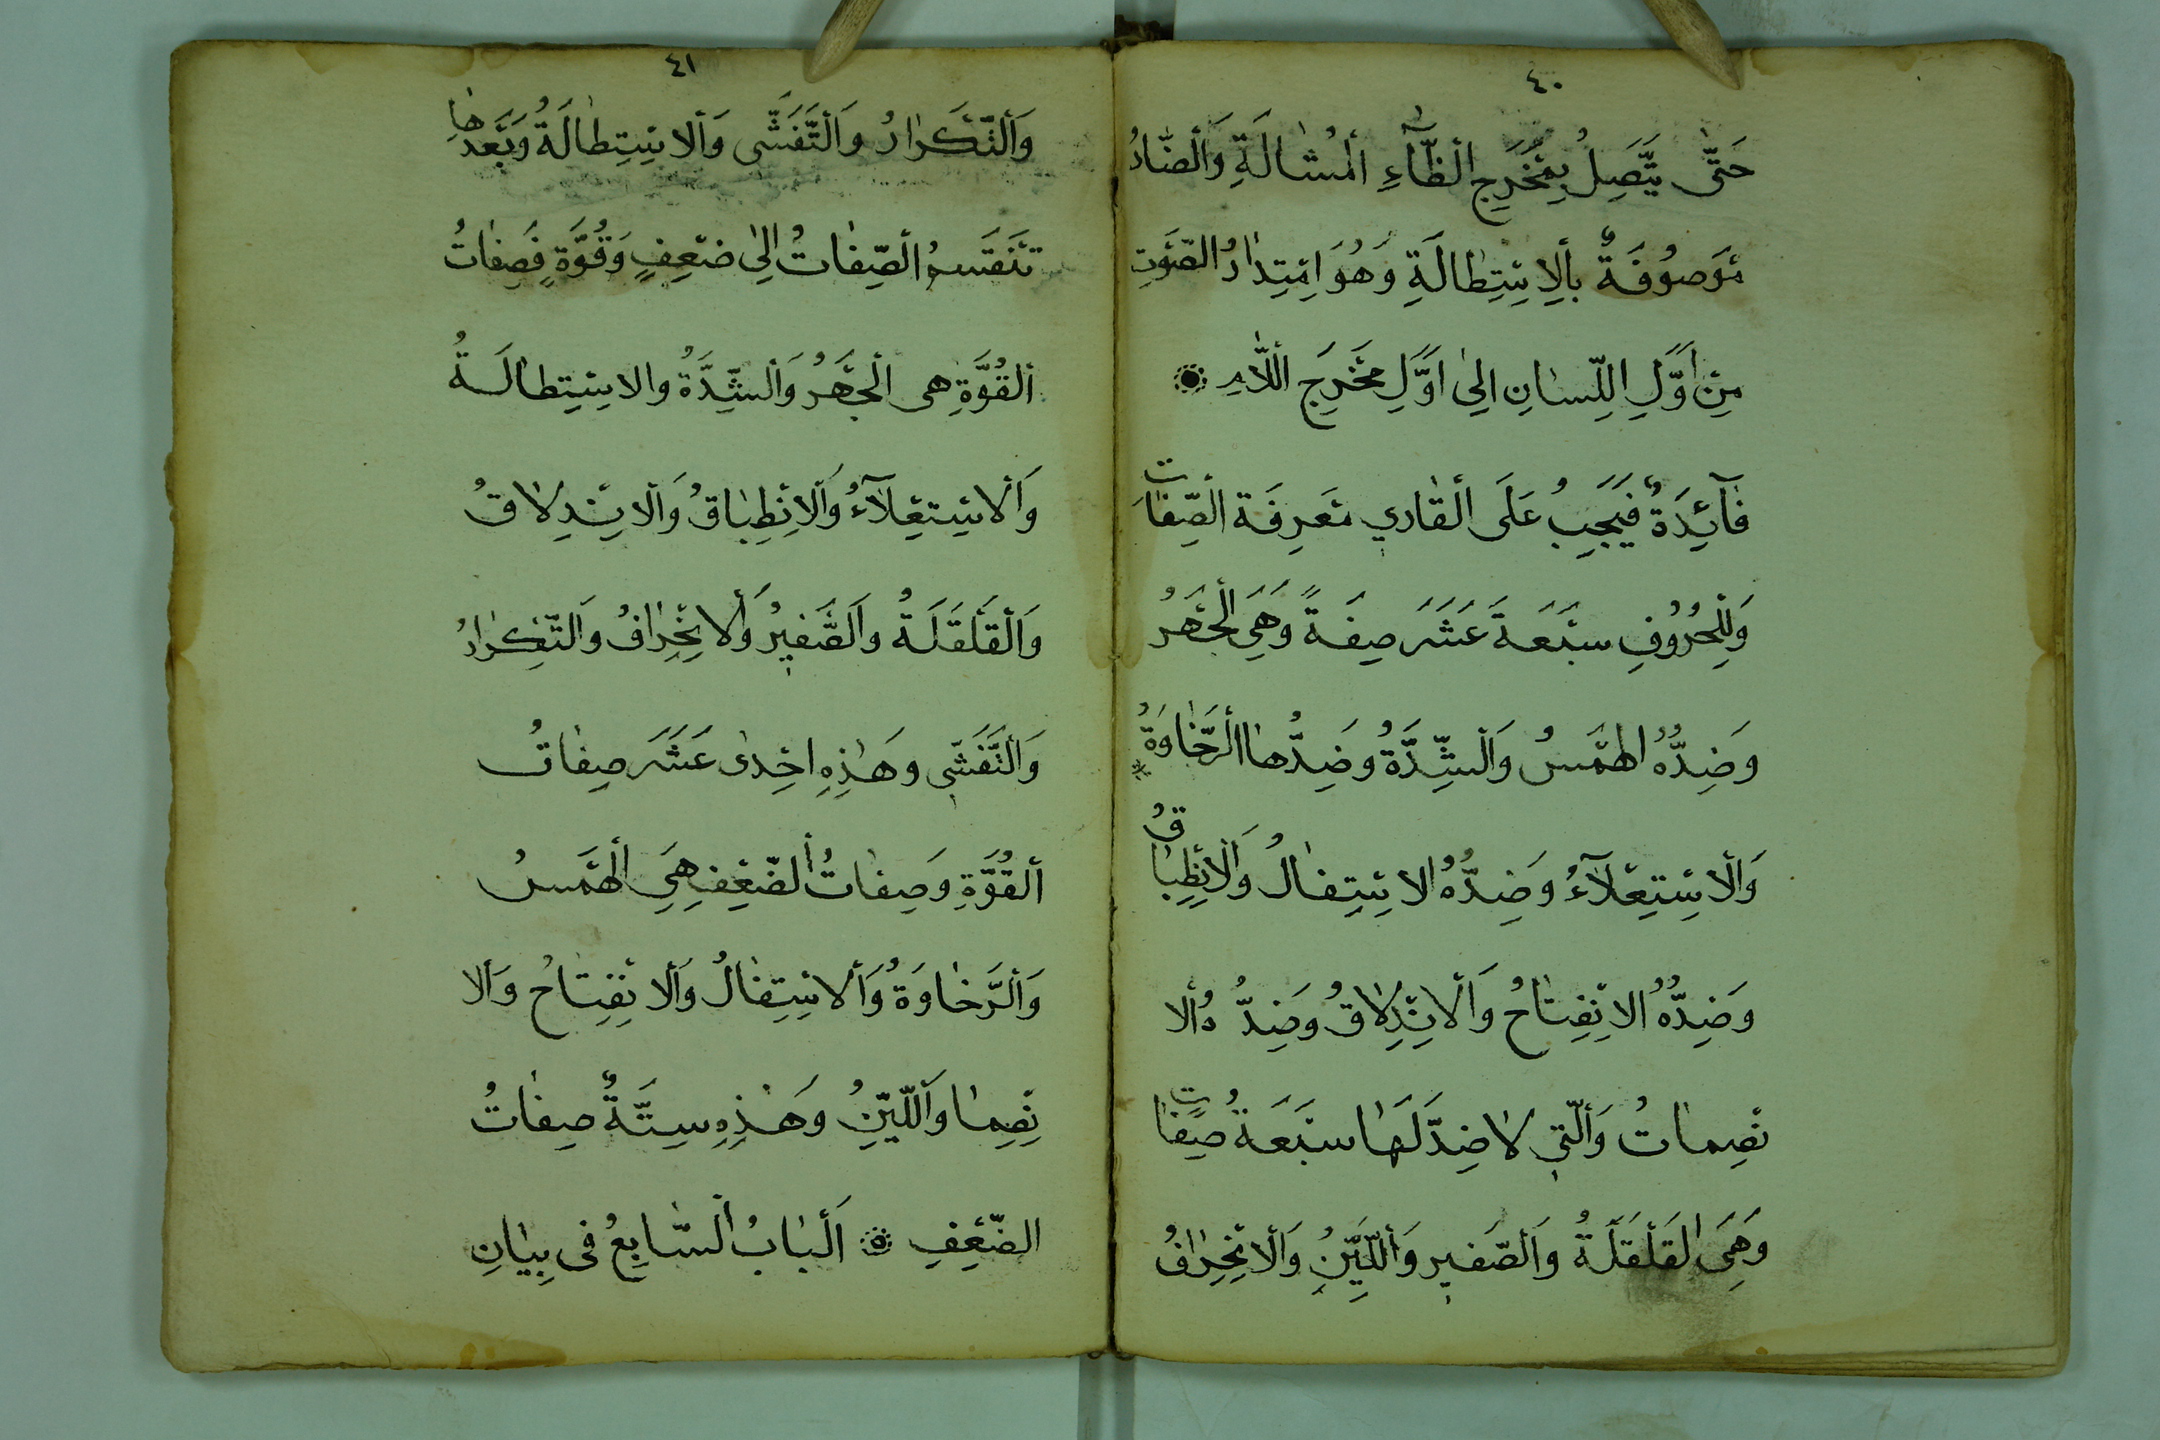 ٤٠
حَتّٰى يَتَّصِلُ بِمَخْرَجِ الظَّآءِ الْمُشَالَةِ وَالضَّادُ
مَوْصُوفَةٌ بِالْاِسْتِطَالَةِ وَهُوَ اِمْتِدَادُ الصَّوْتِ
مِنْ اَوَّلِ اللِّسَانِ اِلٰى اَوَّلِ مَخْرَجِ اللَّامِ
فَآئِدَةٌ فَيَجِبُ عَلَى الْقَارِي مَعْرِفَة الصِّفَات
وَلِلْحُرُوفِ سَبْعَةَ عَشَرَ صِفَةً وَهِيَ الْجَهْرُ
وَضِدُّهُ الْهَمْسُ وَالشِّدَّةُ وَضِدُّهَا الرَّخَاوَةُ
وَالْاِسْتِعْلَآءُ وَضِدُّهُ الْاِسْتِفَالُ وَالْاِنْطِبَاقُ
وَضِدُّهُ الْاِنْفِتَاحُ وَالْاِنْذِلَاقُ وَضِدُّهُ الْا
نْصِمَاتُ وَالَّتِي لَا ضِدَّ لَهَا سَبْعَةُ صِفَات
وَهِيَ الْقَلْقَلَةُ وَالصَّفِير وَاللَّيِّنُ وَالْاِنْحِرَافُ
٤١
وَالتَّكْرَارُ وَالتَّفَشِّى وَالْاِسْتِطَالَةُ وَبَعْدَهَا
تَنْقَسِمُ الصِّفَاتُ اِلٰى ضَعْفٍ وَقُوَّةٍ فَصِفَاتُ
الْقُوَّةِ هِى الْجَهْرُ وَالشِّدَّةُ وَالْاِسْتِطَالَةُ
وَالْاِسْتِعْلَآءُ وَالْاِنْطِبَاقُ وَالْاِنْذِلَاقُ
وَالْقَلْقَلَةُ وَالصَّفِيرُ وَالْاِنْحِرَافُ وَالتَّكْرَارُ
وَالتَّفَشِّي وَهٰذِهِ اِحْدٰى عَشَرَ صِفَاتُ
الْقُوَّةِ وَصِفَاتُ الضَّعْفِ هِيَ الْهَمْسُ
وَالرَّخَاوَةُ وَالْاِسْتِفَالُ وَالْاِنْفِتَاحُ وَالْا
نْصِمَا وَاللَّيِّنُ وَهٰذِهِ سِتَّةٌ صِفَاتُ
الضَّعْفِ اَلْبَابُ السَّابِعُ فِى بَيَانِ